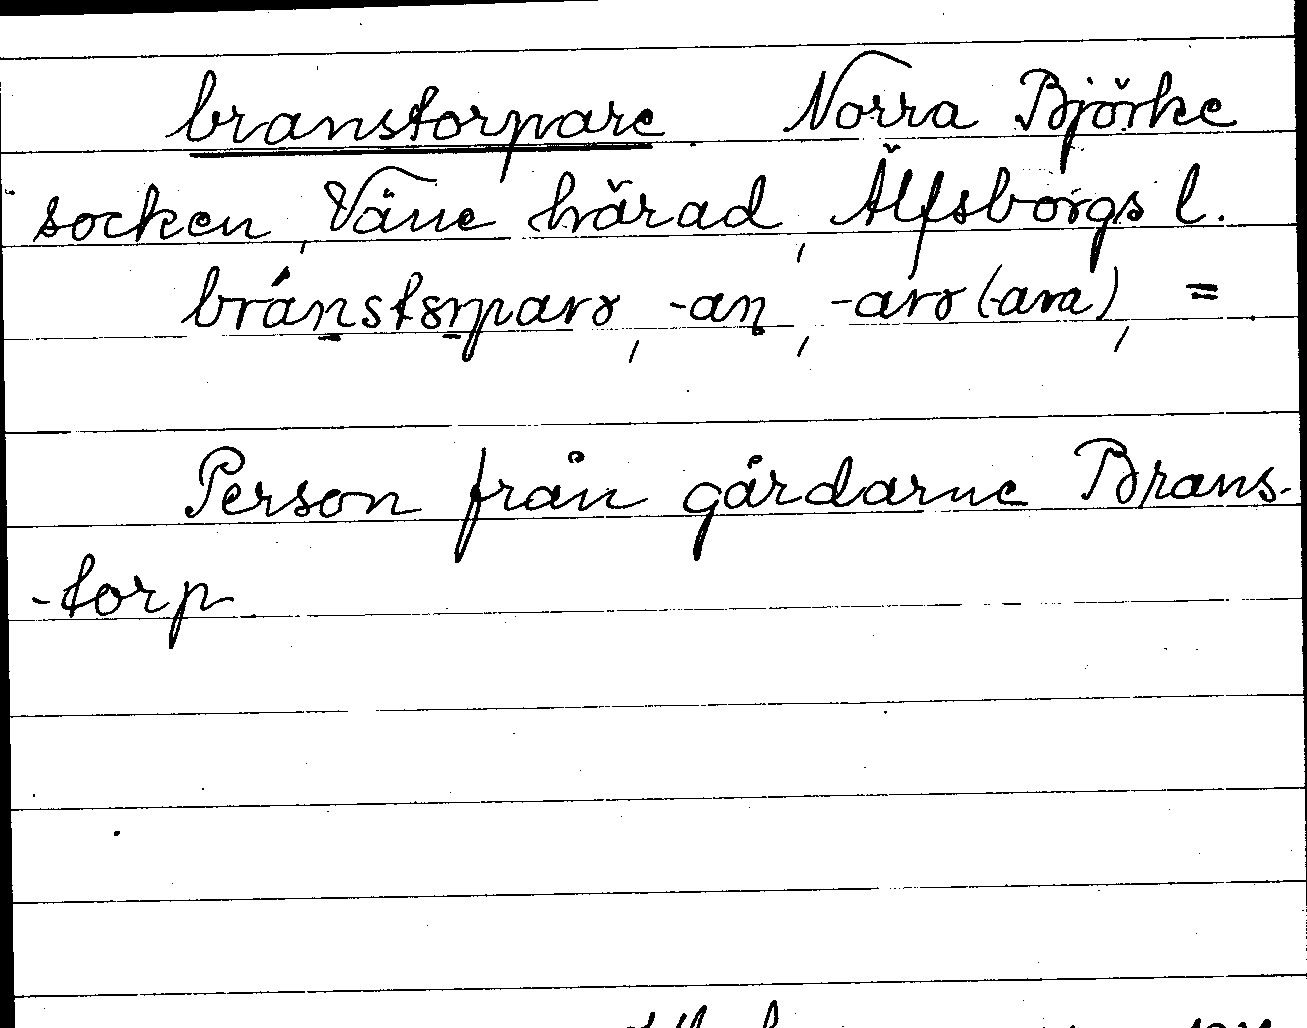 branstorpare Norra Björke
socken, Väne härad, Älfsborgs l.
bránstɞrparɤ, -aņ, -arɤ (-ara), =
Person från gårdarne Brans-
-torp